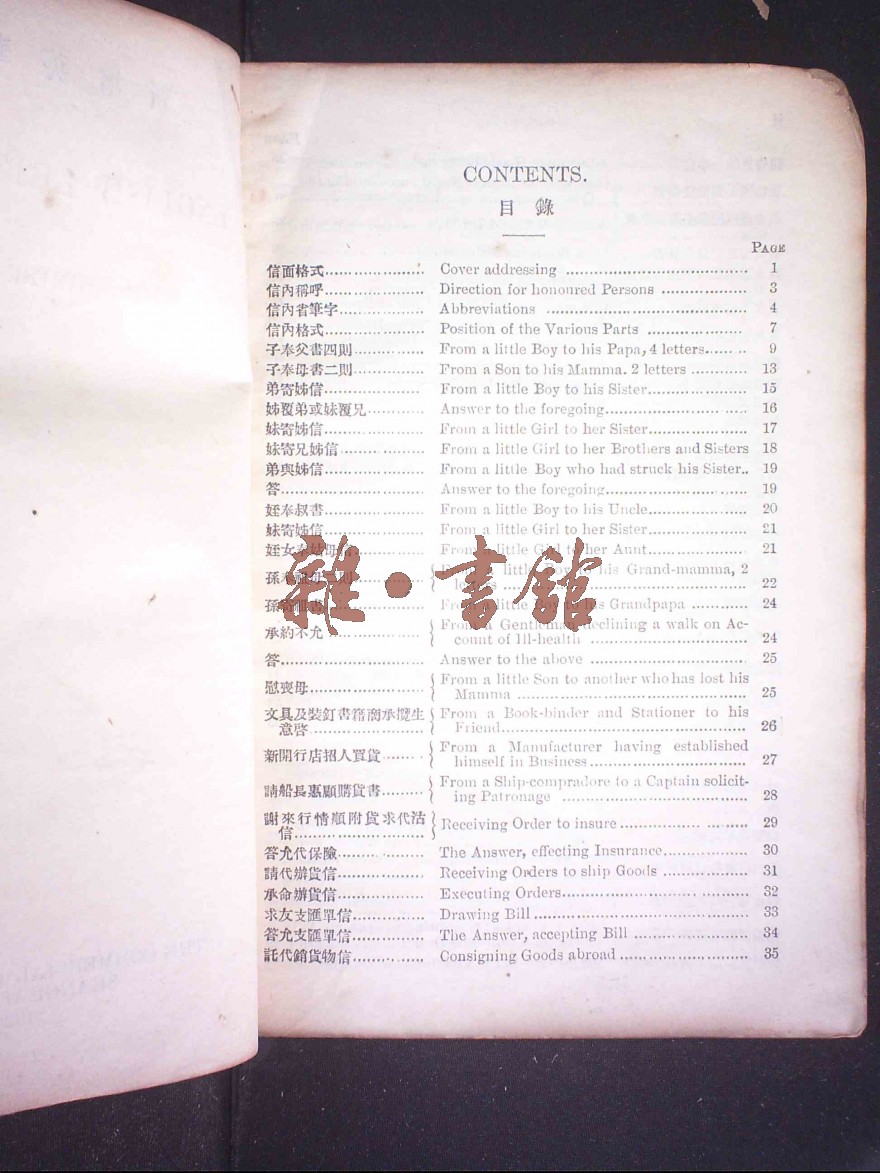 CONTENTS.
目錄
PAGE
信面格式 Cover addressing 1
信內稱呼 Direction for honoured Persons 3
信內省筆字 Abbreviations 4
信內格式 Position of the Various Parts 7
子奉父書四則 From a little Boy to his Papa, 4 letters 9
子奉母書二則 From a Son to his Mamma. 2 letters 13
弟寄姊信 From a little Boy to his Sister 15
姊覆弟或妹覆兄 Answer to the foregoing 16
妹寄姊信 From a little Girl to her Sister 17
妹寄兄姊信 From a little Girl to her Brothers and Sisters 18
弟與姊信 From a little Boy who had struck his Sister 19
答 Answer to the foregoing 19
姪奉叔書 From a little Boy to his Uncle 20
妹寄姊信 From a little Girl to her Sister 21
姪女奉姑母信 From a little Girl to her Aunt 21
孫 則 little Boy to his Grand-mamma, 2
letters 22
孫寄祖書 From a little Boy to his Grandpapa 24
承約不允 From a Gentleman declining a walk on Ac-
count of Ill-health 24
答 Answer to the above 25
慰喪母 From a little Son to another who has lost his
Mamma 25
文具及裝釘書籍商承攬生 From a Book-binder and Stationer to his
意啓 Friend 26
新開行店招人買貨 From a Manufacturer having established
himself in Business 27
請船長惠顧購貨書 From a Ship-compradore to a Captain solicit-
ing Patronage 28
謝來行情順附貨求代沽
信 Receiving Order to insure 29
答允代保險 The Answer, effecting Insurance 30
請代辦貨信 Receiving Orders to ship Goods 31
承命辦貨信 Executing Orders 32
求友支匯單信 Drawing Bill 33
答允支匯單信 The Answer, accepting Bill 34
託代銷貨物信 Consigning Goods abroad 35
雜·書館